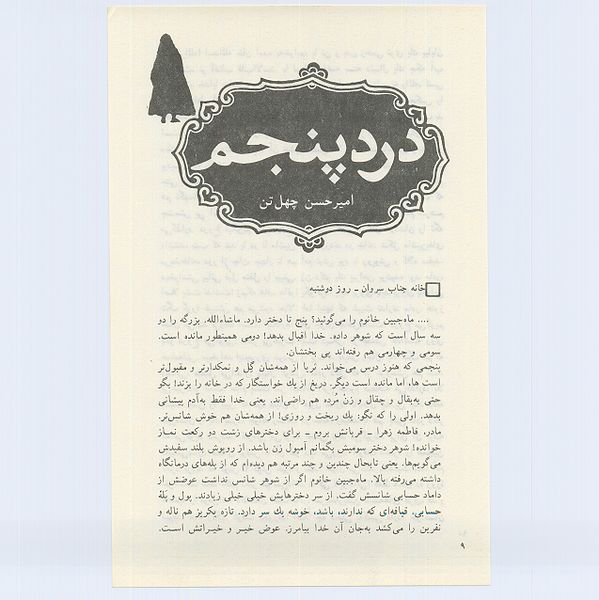 درد پنجم
امیرحسن چهل‌تن
خانه جناب سروان ـ روز دوشنبه
.... ماه‌جبین خانوم را می‌گوئید؟ پنج تا دختر دارد. ماشاءالله. بزرگه را دو
سه سال است که شوهر داده. خدا اقبال بدهد! دومی همینطور مانده است.
سومی و چهارمی هم رفته‌اند پی بختشان.
پنجمی که هنوز درس می‌خواند. ثریا از همه‌شان گل و نمکدارتر و مقبول‌تر
است ها، اما مانده است دیگر. دریغ از یك خواستگار که در خانه را بزند! بگو
حتی به‌بقال و چقال و زنْ مُرده هم راضی‌اند. یعنی خدا فقط به‌آدم پیشانی
بدهد. اولی را که نگو: یك ریخت و روزی! از همه‌شان هم خوش شانس‌تر.
مادر، فاطمه زهرا ـ قربانش بروم ـ برای دخترهای زشت دو رکعت نماز
خوانده! شوهر دختر سومیش بگمانم آمپول زن باشد. از روپوش بلند سفیدش
می‌گویم‌ها. یعنی تابحال چندین و چند مرتبه هم دیده‌ام که از پله‌های درمانگاه
داشته می‌رفته بالا. ماه‌جبین خانوم اگر از شوهر شانس نداشت عوضش از
داماد حسابی شانسش گفت. از سر دخترهایش خیلی خیلی زیادند. پول و پَلهٔ
حسابی. قیافه‌ای که ندارند، باشد، خوشه یك سر دارد. تازه یکریز هم ناله و
نفرین را می‌کشد به‌جان آن خدا بیامرز. عوض خیر و خیراتش است.
۹